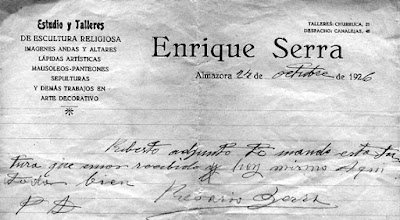 Estudio y Talleres
DE ESCULTURA RELIGIOSA
IMAGENES ANDAS Y ALTARES
LÁPIDAS ARTÍSTICAS
MAUSOLEOS-PANTEONES
SEPULTURAS
Y DEMÁS TRABAJOS EN
ARTE DECORATIVO
TALLERES: CHURRUCA, 21
DESPACHO: CANALEJAS,
Enrique Serra
Almazora 24 de octubre de 1926
Roberto adjunto te mando esta fac
tura que emos recibido hoy mismo aqui
todos bien
Rosario Serra
P D